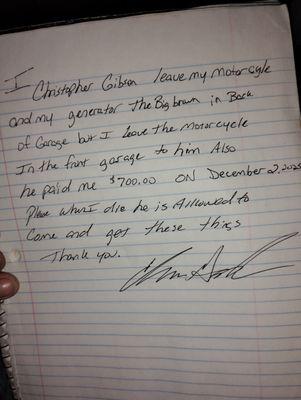 I Christopher Gibson leave my Motorcycle
and my generator the Big brown in Back
of Garage but I leave the Motorcycle
In the front garage to him Also
he paid me $700.00 ON December 2, 2025
Please when I die he is Allowed to
Come and get these things
Thank you.